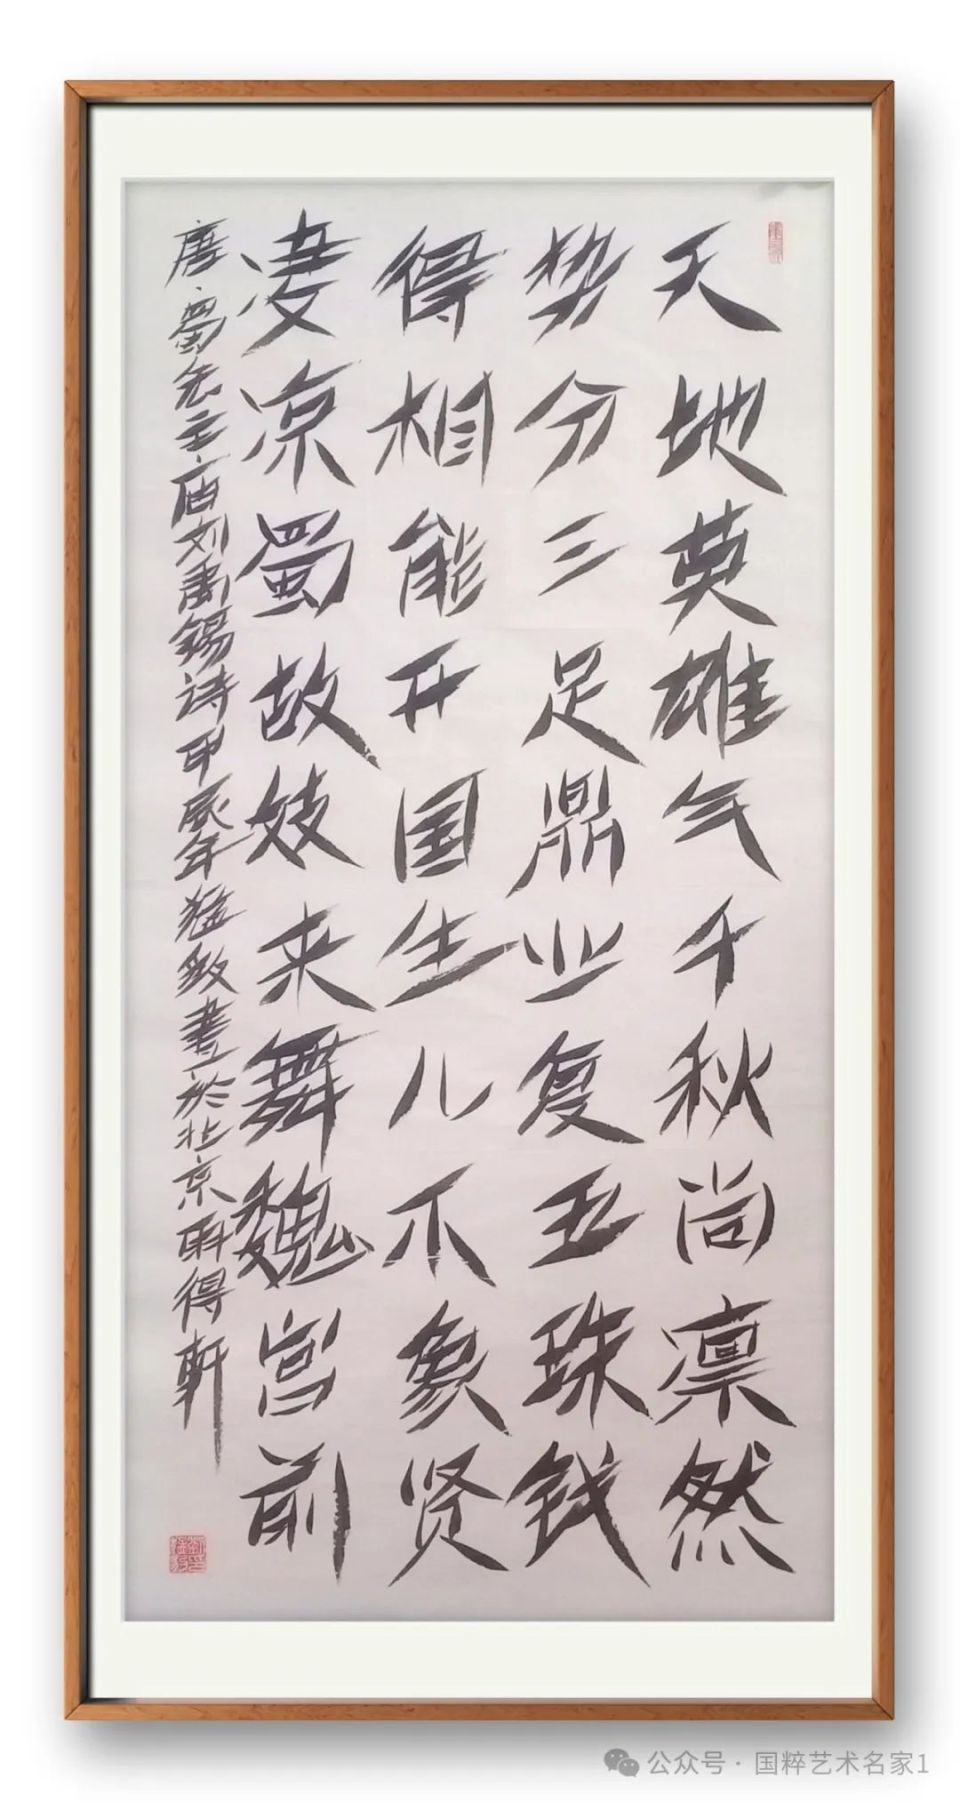 天地英雄气千秋尚凛然
势分三足鼎业复五珠钱
得相能开国生儿不象贤
凄凉蜀故妓来舞魏宫前
唐·蜀先主庙刘禹锡诗甲辰年猛敏書於北京耕得軒
公众号·国粹艺术名家1